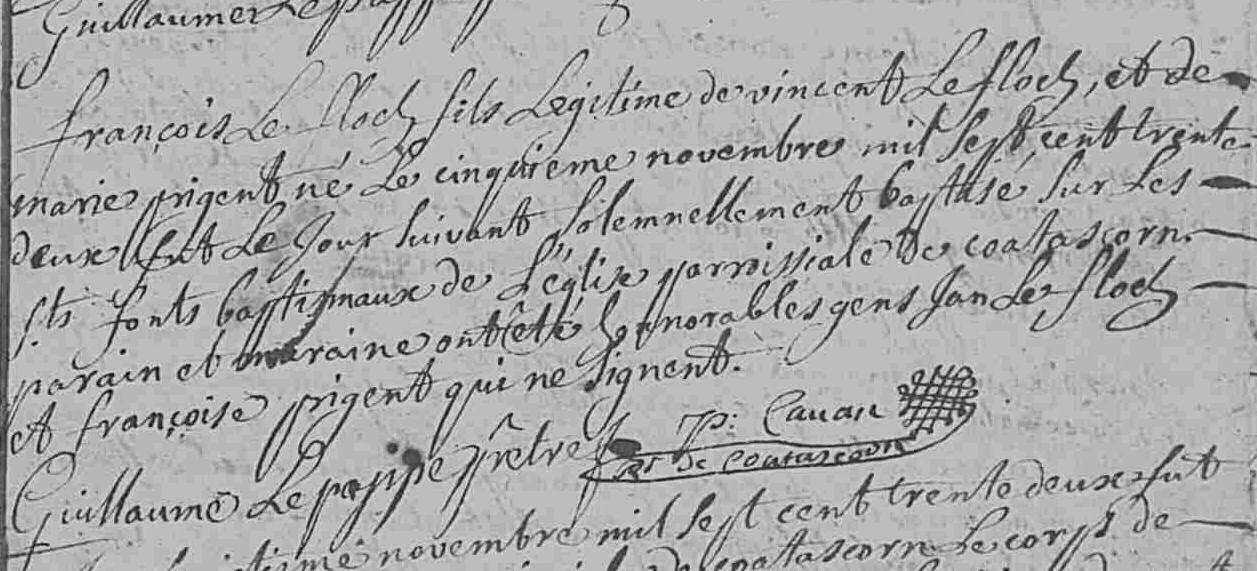 Guillaume Le pappe
françois Le floch fils Legitime de vincent Le floch, et de
marie prigent né Le cinquieme novembre mil sept cent trente
deux fut Le Jour suivant solemnellement baptisé sur Les
sts fonts baptismaux de L'église parroissiale de coatascorn.
parain et maraine ont été honnorables gens Jan Le floch
et françoise prigent qui ne signent.
Guillaume Le pappe prêtre p: Cauan
rr de coatascorn
novembre mil sept cent trente deux fut
de coatascorn Le corps de